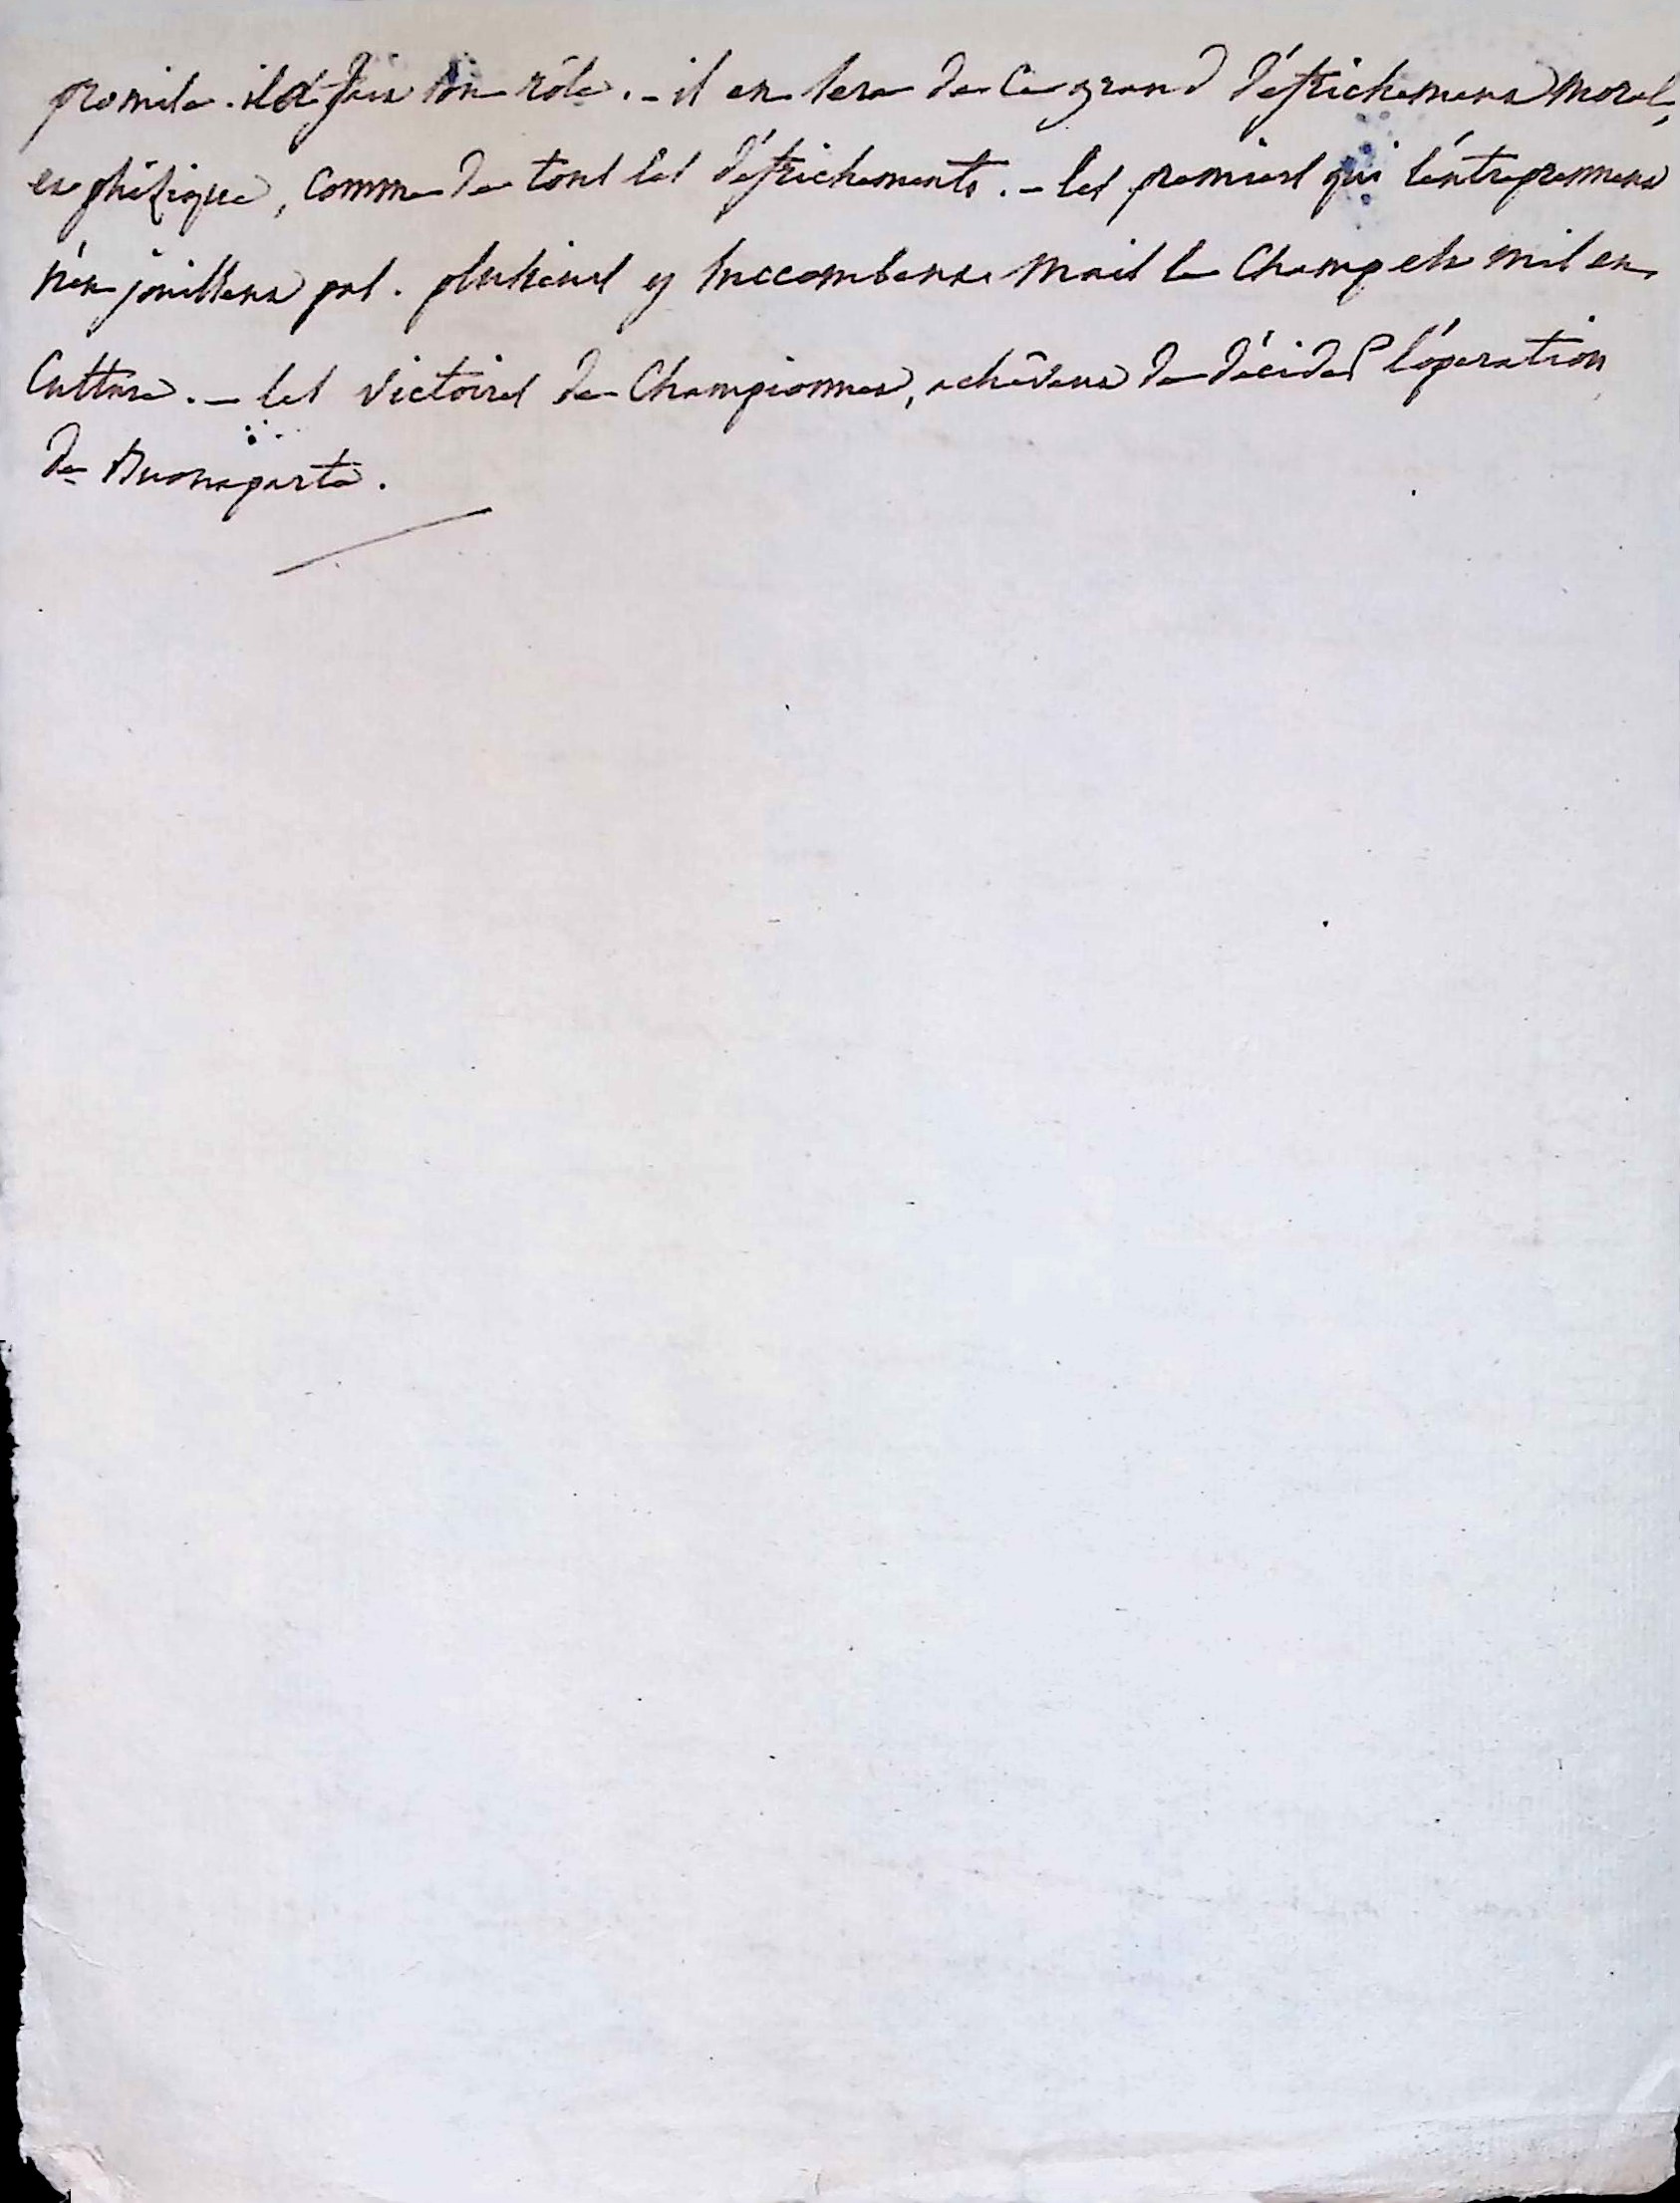 promise. il a fait son rôle. - il en sera de ce grand défrichement moral,
et phisique, comme de tous les défrichements. - les premiers qui l'entreprennent
n'en jouissent pas. plusieurs y succombent. mais le champ est mis en
culture. - les victoires de Championnet, achêvent de décider l'opération
de Buonaparte.